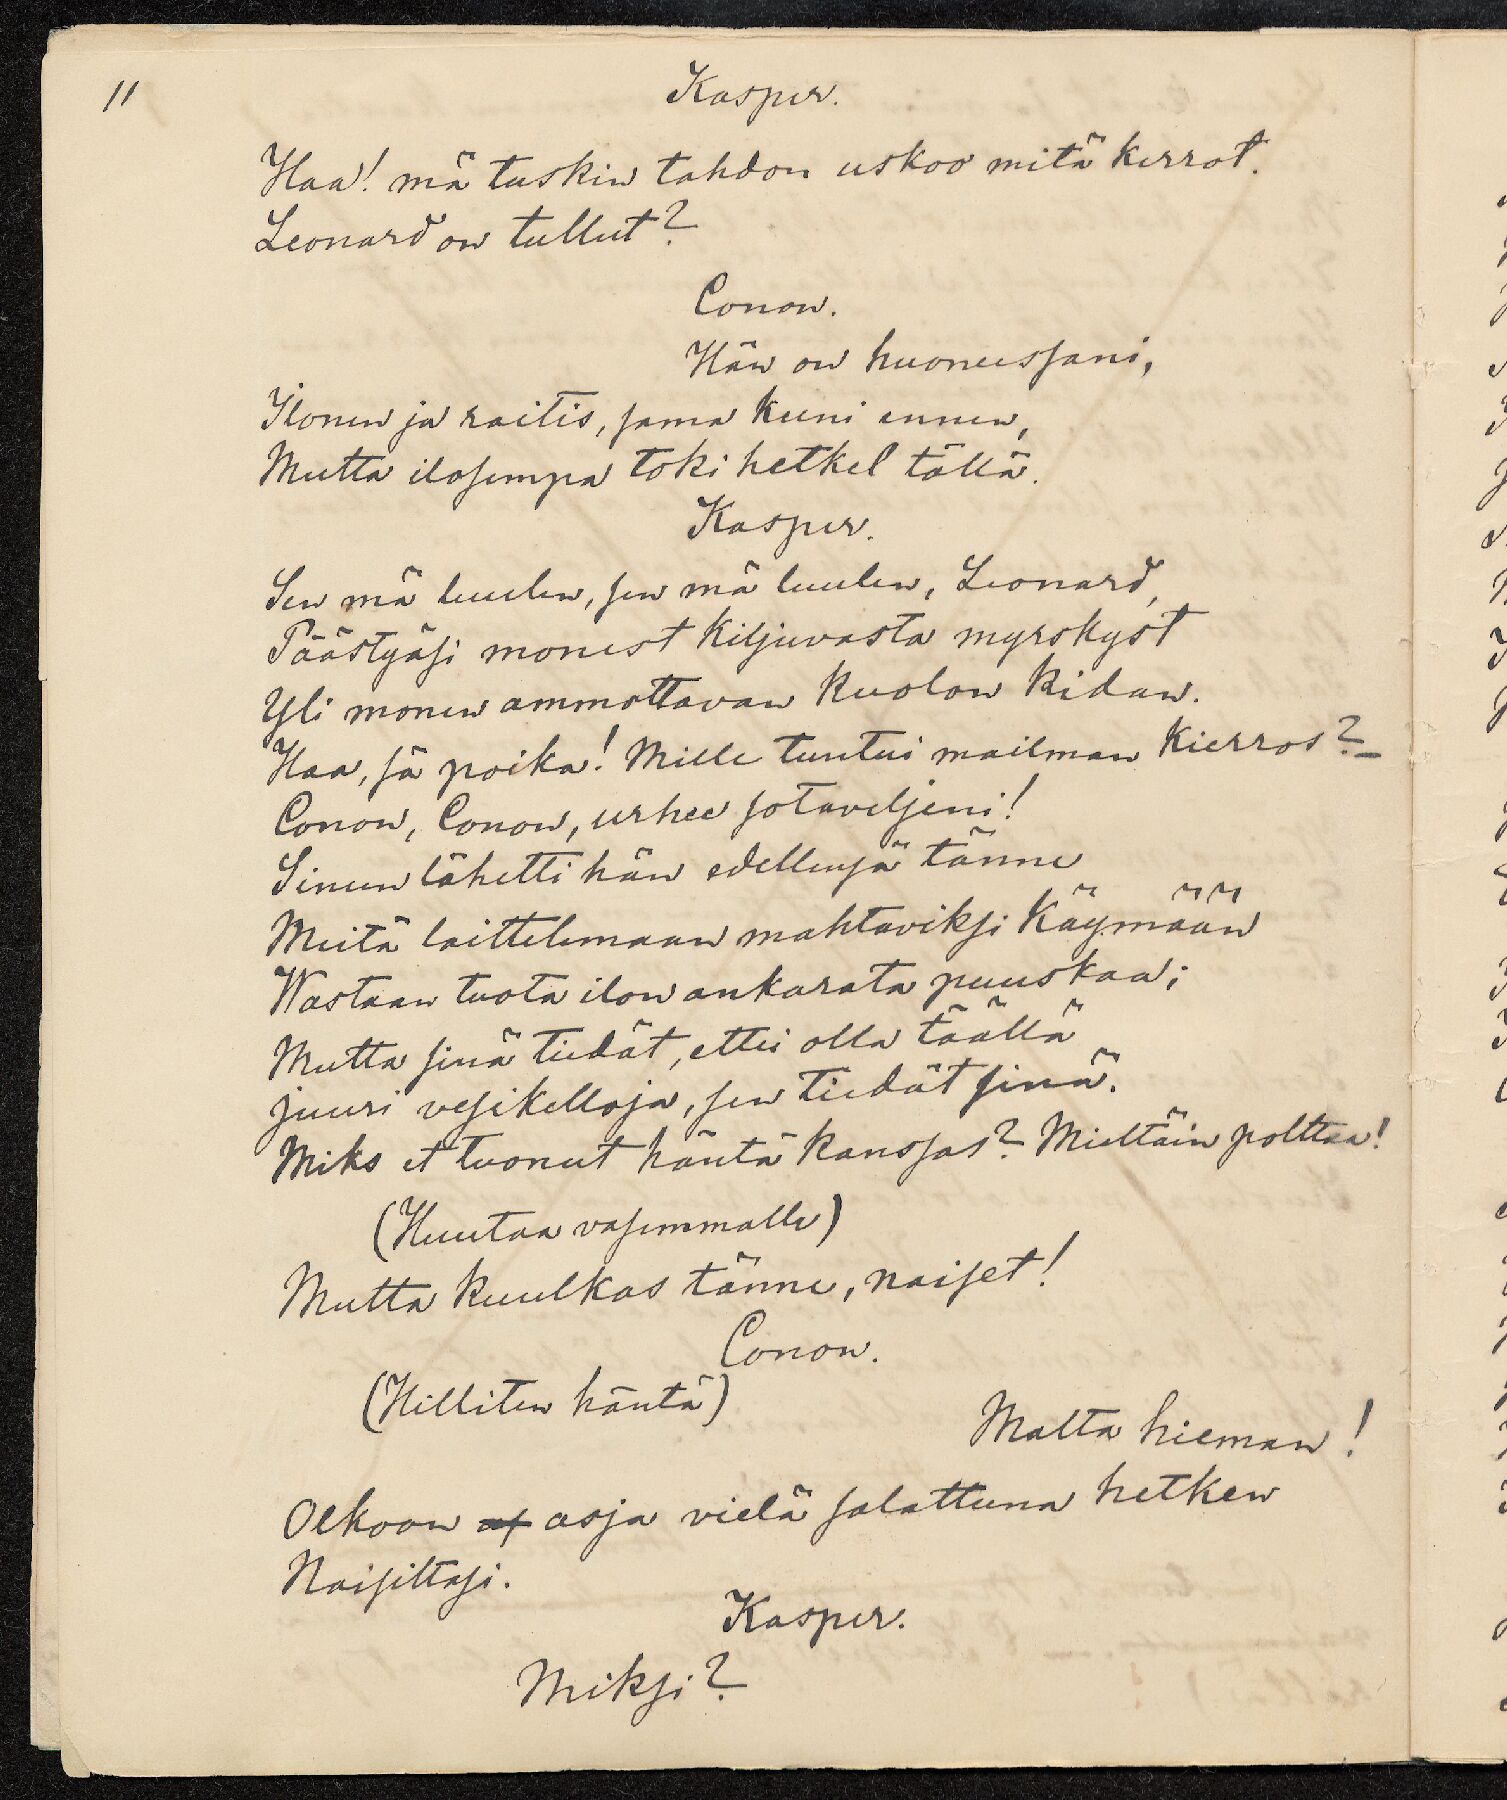 11
Kasper.
Haa! mä tuskin tahdon uskoo mitä kerrot.
Leonard on tullut?
Conon.
Hän on huoneessani,
Ilonen ja raitis, sama kuni ennen,
Mutta ilosempa toki hetkel tällä.
Kasper.
Sen mä luulen, sen mä luulen, Leonard,
Päästyäsi monest kiljuvasta myrskyst
Yli monen ammottavan kuolon kidan.
Haa, sä poika! Mille tuntui mailman kierros?–
Conon, Conon, urhee sotaveljeni!
Sinun lähetti hän edellensä tänne
Meitä laittelemaan mahtaviksi käymään
Wastaan tuota ilon ankarata puuskaa;
Mutta sinä tiedät, ettei olla täällä
juuri vesikelloja, sen tiedät sinä.
Miks et tuonut häntä kanssas? Mieltäin polttaa!
(Huutaa vasemmalle)
Mutta kuulkas tänne, naiset!
Conon.
(Hilliten häntä)
Malta hieman!
Olkoon as asja vielä salattuna hetken
Naisiltasi.
Kasper.
Miksi?